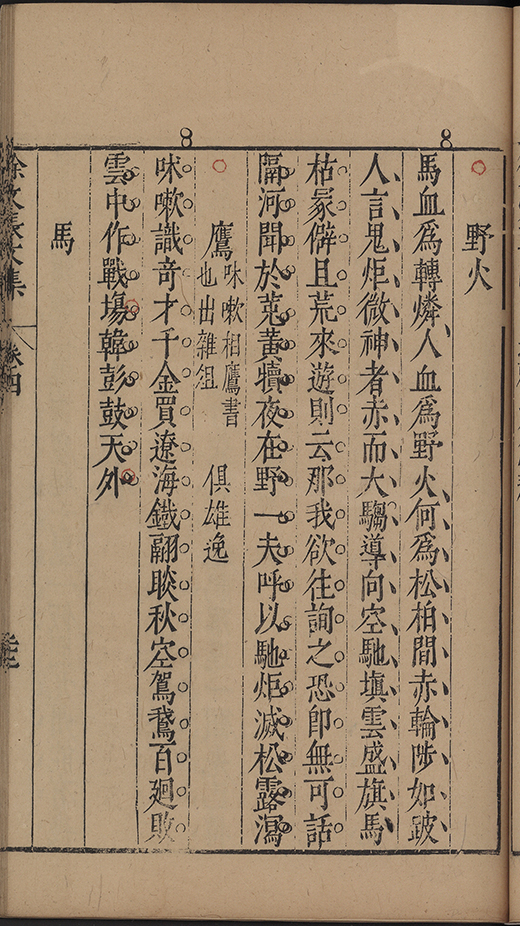 野火
馬血爲轉燐人血爲野火何爲松柏間赤輪陟如跛
人言鬼炬微神者赤而大騶導向空馳塡雲盛旗馬
枯冢僻且荒來遊則云那我欲往詢之恐卽無可話
隔河聞於菟黃犢夜在野一夫呼以馳炬滅松露瀉
鷹 咊嗽相鷹書也出雜俎 俱雄逸
咊嗽識奇才千金買遼海鐵翮睒秋空駕鵞百廻敗
雲中作戰場韓彭鼓天外
馬
徐文長文集 卷四